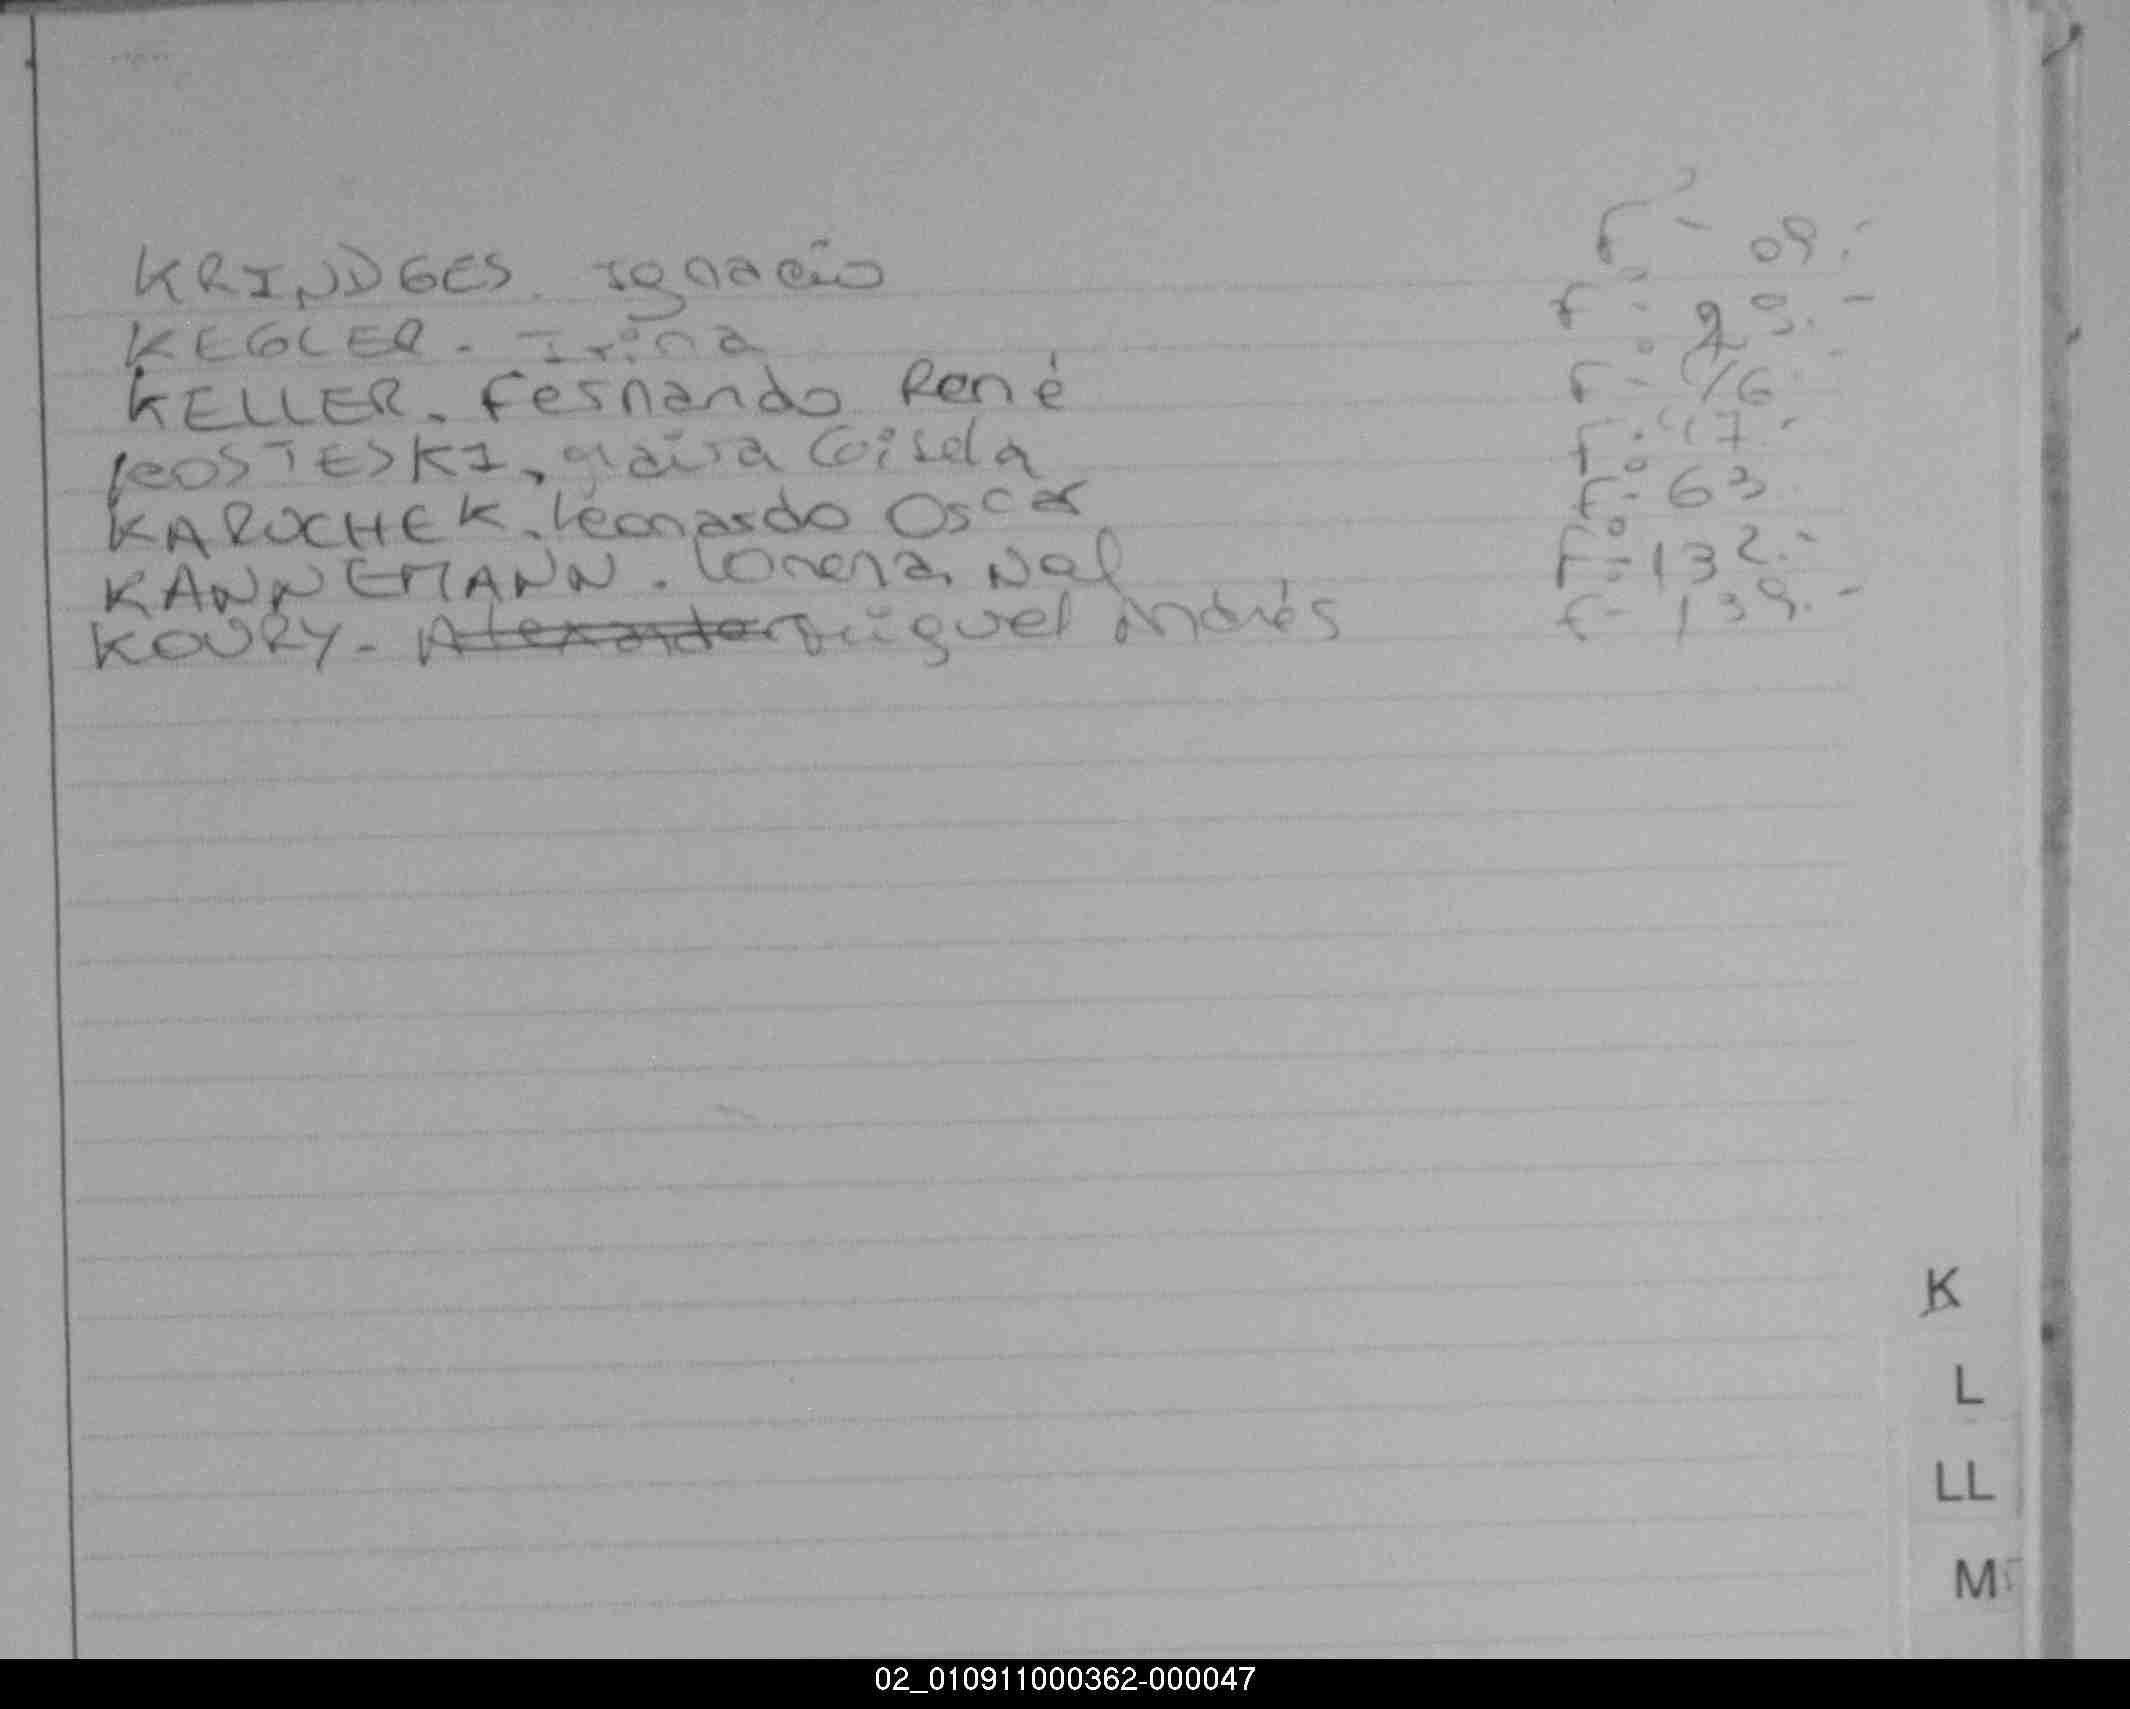 KRINDGES. Ignacio Fº- 09.-
KEGLER. Irina Fº- 29.-
KELLER. Fernando René Fº- 46.-
KOSTESKI, Maira Gisela Fº- 47.-
KARUCHEK. Leonardo Oscar Fº- 63.
KANNEMANN. Lorena Nal Fº- 132.-
KOURY- Alexander Miguel Andrés F- 139.-
K
L
LL
M
02_010911000362-000047